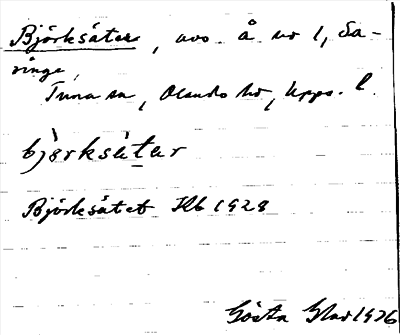 Björksäter, avs. å nr 1, Sa-
ringe,
Tuna sn, Olands hd, Upps. l.
bjørksätar
Björksätet Hb 1928
Gösta 1976